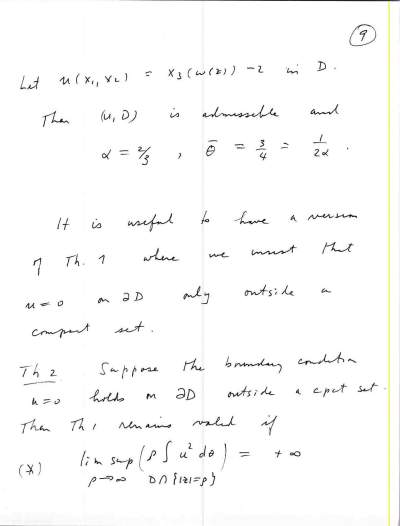 9
Let u(x₁, x₂) = x₃(w(z)) - 2 in D.
Then (u, D) is admissible and
α = 2/3 , θ̄ = 3/4 = 1/2α .
It is useful to have a version
of Th. 1 where we insist that
u=0 on ∂D only outside a
compact set.
Th 2 Suppose the boundary condition
u=0 holds on ∂D outside a cpct set.
Then Th 1 remains valid if
(*) lim sup (ρ ∫ u² dθ) = +∞
ρ→∞ D∩{|z|=ρ}